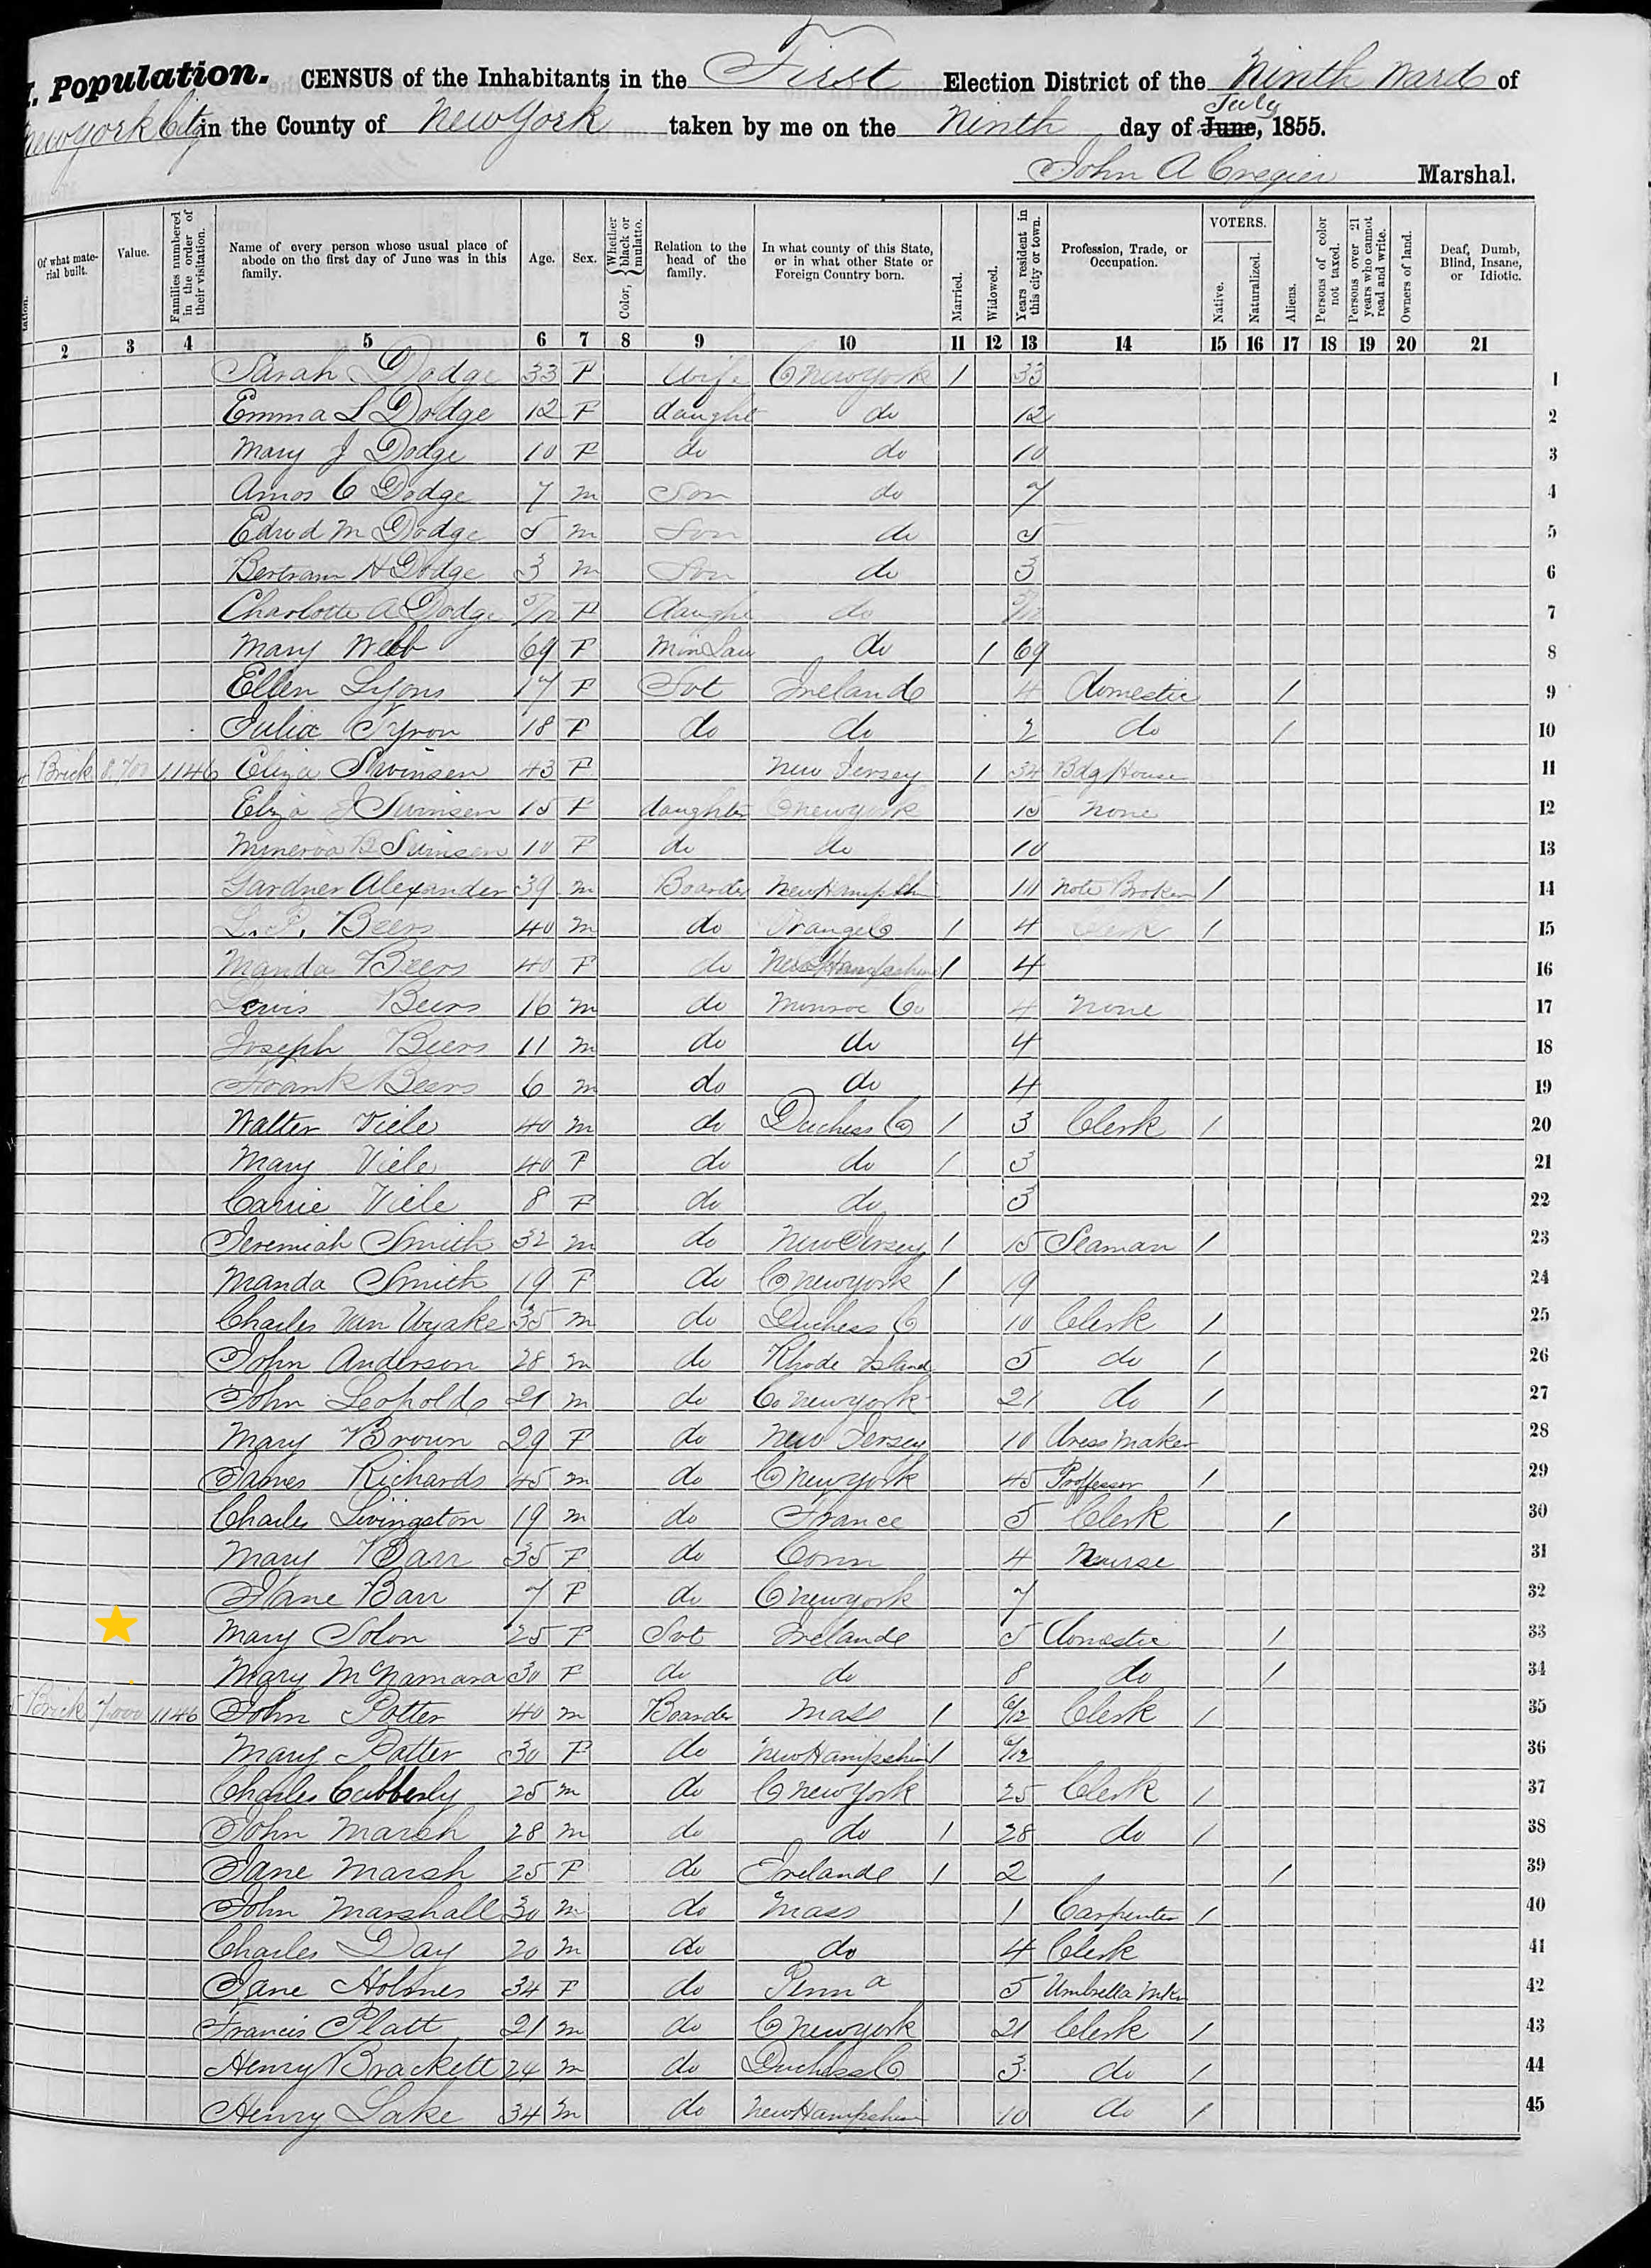 I. Population. CENSUS of the Inhabitants in the First Election District of the Ninth Ward of
New York City in the County of New York taken by me on the Ninth day of June, July 1855.
John A Cregier Marshal.
Of what material built. Value. Families numbered in the order of their visitation. Name of every person whose usual place of abode on the first day of June was in this family. Age. Sex. Color, Whether black or mulatto. Relation to the head of the family. In what county of this State, or in what other State or Foreign Country born. Married. Widowed. Years resident in this city or town. Profession, Trade, or Occupation. VOTERS. Native. Naturalized. Aliens. Persons of color not taxed. Persons over 21 years who cannot read and write. Owners of land. Deaf, Dumb, Blind, Insane, or Idiotic.
2 3 4 5 6 7 8 9 10 11 12 13 14 15 16 17 18 19 20 21
Sarah Dodge 33 F Wife Co New York 1 33 1
Emma L Dodge 12 F daught do 12 2
Mary J Dodge 10 F do do 10 3
Amos C Dodge 7 m Son do 7 4
Edwd M Dodge 5 m Son do 5 5
Bertram H Dodge 3 m Son do 3 6
Charlotte A Dodge 5/12 F daught do 5/12 7
Mary Webb 69 F M in Law do 1 69 8
Ellen Lyons 17 F Svt Ireland 4 domestic 1 9
Julia Tyron 18 F do do 2 do 1 10
Brick 1146 Eliza Swinsen 43 F New Jersey 1 34 Bdg House 11
Eliza J Swinsen 15 F daughter Co New York 15 none 12
Minerva B Swinsen 10 F do do 10 13
Gardner Alexander 39 m Boarder New Hampsh Note Broker 1 14
L. P. Beers 40 m do Orange Co 1 4 Clerk 1 15
Manda Beers 40 F do New Hampshire 1 4 16
Lewis Beers 16 m do Monroe Co 4 none 17
Joseph Beers 11 m do do 4 18
Frank Beers 6 m do do 4 19
Walter Viele 40 m do Duchess Co 1 3 Clerk 1 20
Mary Viele 40 F do do 1 3 21
Carrie Viele 8 F do do 3 22
Jeremiah Smith 32 m do New Jersey 1 15 Seaman 1 23
Manda Smith 19 F do Co New York 1 19 24
Charles Van Wyake 35 m do Duchess Co 10 Clerk 1 25
John Anderson 28 m do Rhode Island 5 do 1 26
John Leopolds 21 m do Co New York 21 do 1 27
Mary Brown 29 F do New Jersey 10 dress maker 28
James Richards 45 m do Co New York 45 Proffessor 1 29
Charles Livingston 19 m do France 5 Clerk 1 30
Mary Barr 35 F do Conn 4 Nurse 31
Jane Barr 7 F do Co New York 7 32
Mary Solon 25 F Svt Irelande 5 domestic 1 33
Mary McNamara 30 F do do 8 do 1 34
Brick 7,000 1146 John Potter 40 m Boarder Mass 1 6/12 Clerk 1 35
Mary Potter 30 F do New Hampshire 1 6/12 36
Charles Cubberly 25 m do Co New York 25 Clerk 1 37
John Marsh 28 m do do 1 28 do 1 38
Jane Marsh 25 F do Irelande 1 2 1 39
John Marshall 30 m do Mass 1 Carpenter 1 40
Charles Day 20 m do do 4 Clerk 41
Jane Holmes 34 F do Penna 5 Umbrella mkr 42
Francis Platt 21 m do Co New York 21 Clerk 1 43
Henry Brackett 24 m do Duchess Co 3 do 1 44
Henry Lake 34 m do New Hampshire 10 do 1 45